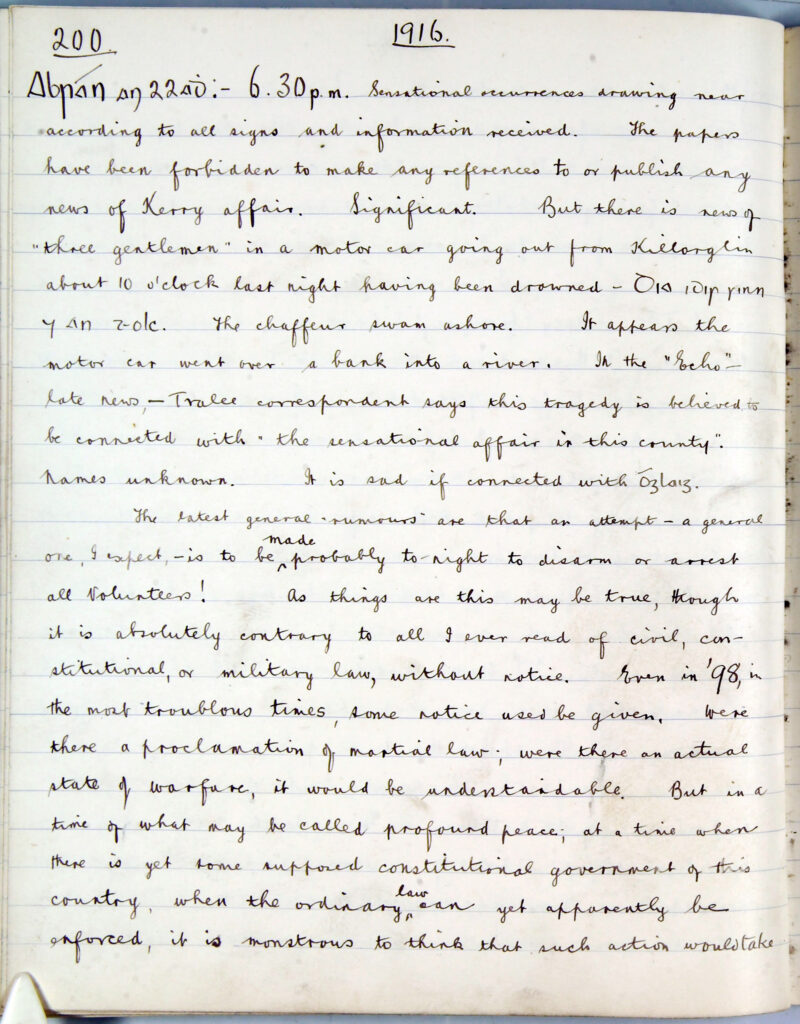 200.
1916.
Abrán an 22aḋ:- 6.30 p.m. Sensational occurrences drawing near
according to all signs and information received. The papers
have been forbidden to make any references to or publish any
news of Kerry affair. Significant. But there is news of
"three gentlemen" in a motor car going out from Killorglin
about 10 o'clock last night having been drowned – Dia idir sinn
⁊ an t-olc. The chaffeur swam ashore. It appears the
motor car went over a bank into a river. In the "Echo" –
late news, – Tralee correspondent says this tragedy is believed to
be connected with "the sensational affair in this county".
Names unknown. It is sad if connected with
The latest general "rumours" are that an attempt – a general
one, I expect, – is to be made probably to-night to disarm or arrest
all Volunteers! As things are this may be true, though
it is absolutely contrary to all I ever read of civil, con-
stitutional, or military law, without notice. Even in '98, in
the most troublous times, some notice used be given. Were
there a proclamation of martial law; were there an actual
state of warfare, it would be understandable. But in a
time of what may be called profound peace; at a time when
there is yet some supposed constitutional government of this
country, when the ordinary law can yet apparently be
enforced, it is monstrous to think that such action would take